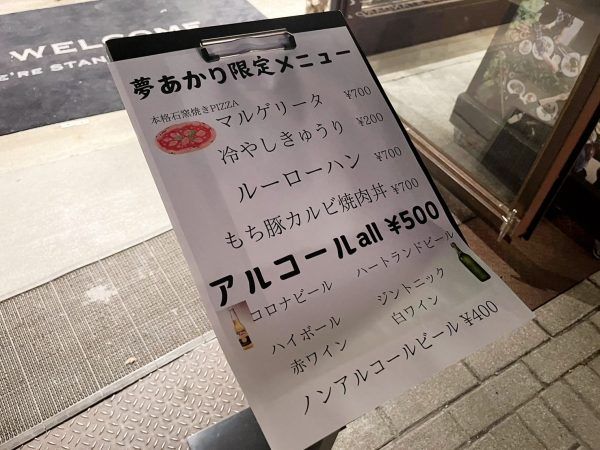 WELCOME
E'RE STAN
夢あかり限定メニュー
本格石窯焼きPIZZA
マルゲリータ ¥700
冷やしきゅうり ¥200
ルーローハン ¥700
もち豚カルビ焼肉丼 ¥700
アルコールall ¥500
コロナビール ハートランドビール
ハイボール ジントニック
赤ワイン 白ワイン
ノンアルコールビール ¥400